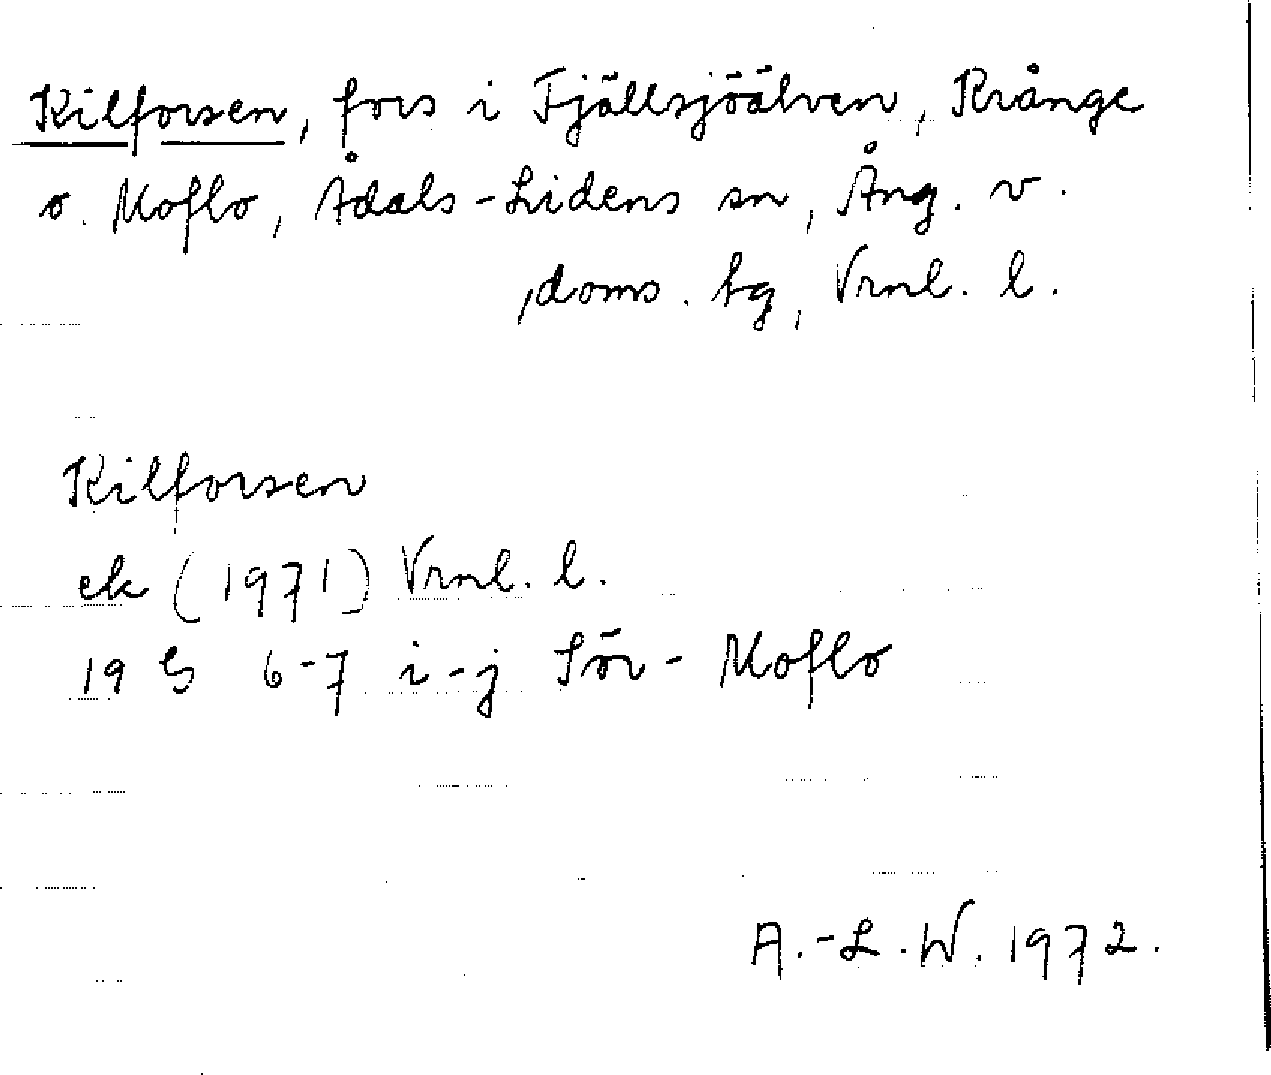 Kilforsen, fors i Fjällsjöälven, Krånge
o. Moflo, Ådals-Lidens sn, Ång. v.
,doms. tg, Vrnl. l.
Kilforsen
ek (1971) Vrnl. l.
19 G 6-7 i-j Sör-Moflo
A.-L.W. 1972.